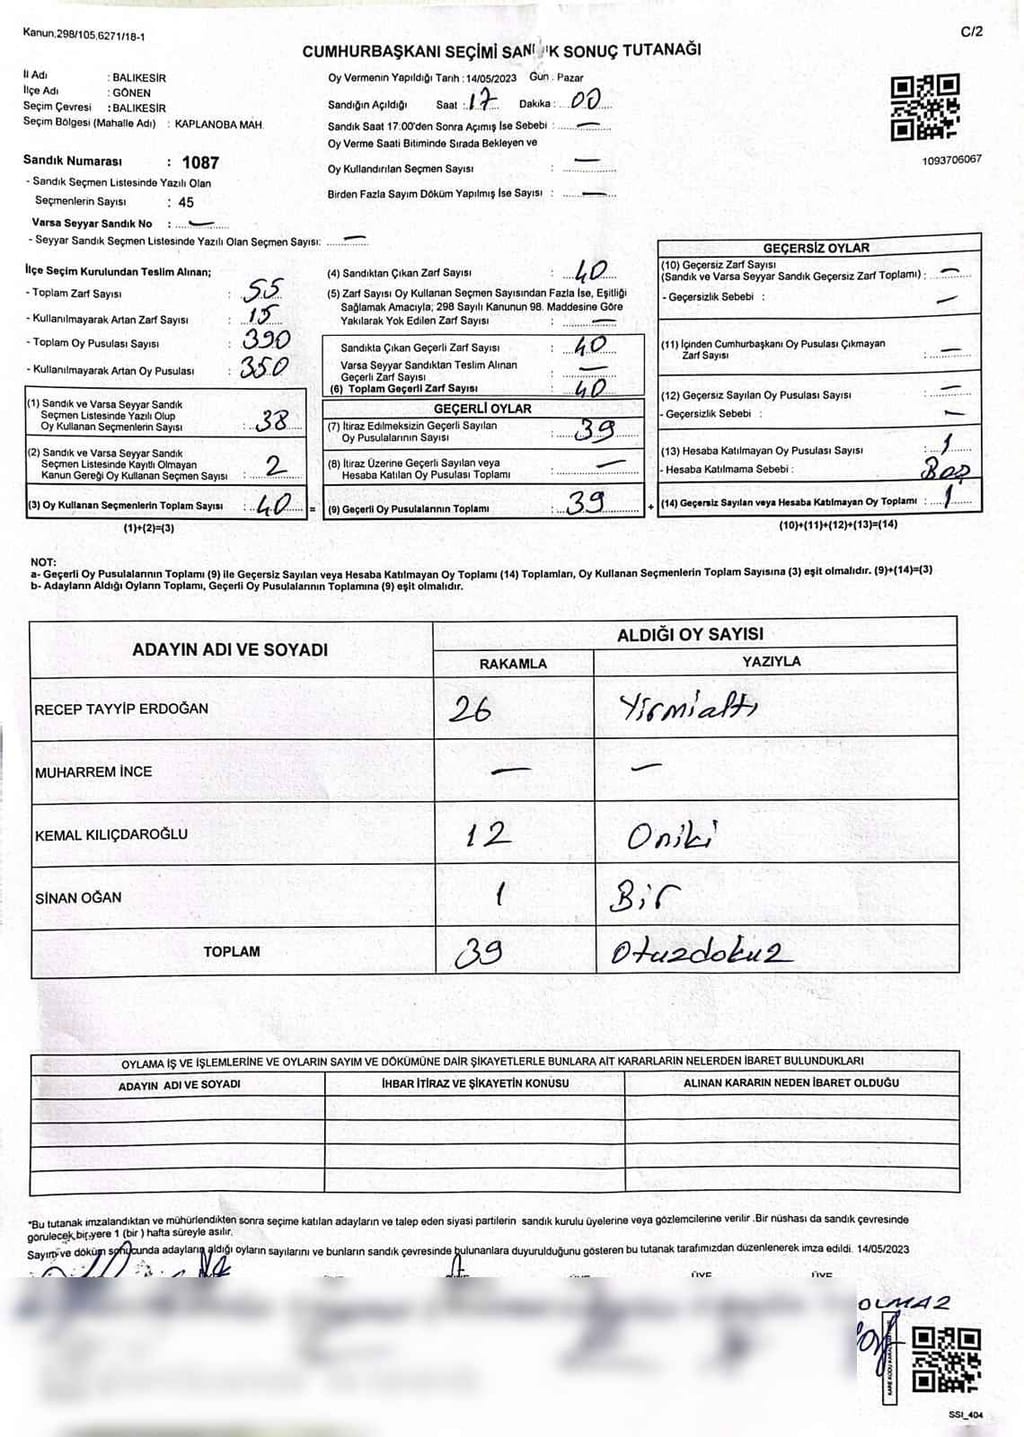 Kanun.298/105,6271/18-1
C/2
CUMHURBAŞKANI SEÇİMİ SANDIK SONUÇ TUTANAĞI
İl Adı : BALIKESİR
İlçe Adı : GÖNEN
Seçim Çevresi : BALIKESİR
Seçim Bölgesi (Mahalle Adı) : KAPLANOBA MAH.
Sandık Numarası : 1087
- Sandık Seçmen Listesinde Yazılı Olan
Seçmenlerin Sayısı : 45
Varsa Seyyar Sandık No : —
- Seyyar Sandık Seçmen Listesinde Yazılı Olan Seçmen Sayısı: —
Oy Vermenin Yapıldığı Tarih : 14/05/2023 Gün : Pazar
Sandığın Açıldığı Saat : 17 Dakika : 00
Sandık Saat 17:00'den Sonra Açımış İse Sebebi : —
Oy Verme Saati Bitiminde Sırada Bekleyen ve
Oy Kullandırılan Seçmen Sayısı : —
Birden Fazla Sayım Döküm Yapılmış İse Sayısı : —
1093706067
İlçe Seçim Kurulundan Teslim Alınan;
- Toplam Zarf Sayısı : 55
- Kullanılmayarak Artan Zarf Sayısı : 15
- Toplam Oy Pusulası Sayısı : 390
- Kullanılmayarak Artan Oy Pusulası : 350
(1) Sandık ve Varsa Seyyar Sandık
Seçmen Listesinde Yazılı Olup
Oy Kullanan Seçmenlerin Sayısı : 38
(2) Sandık ve Varsa Seyyar Sandık
Seçmen Listesinde Kayıtlı Olmayan
Kanun Gereği Oy Kullanan Seçmen Sayısı : 2
(3) Oy Kullanan Seçmenlerin Toplam Sayısı : 40 =
(1)+(2)=(3)
(4) Sandıktan Çıkan Zarf Sayısı : 40
(5) Zarf Sayısı Oy Kullanan Seçmen Sayısından Fazla İse, Eşitliği
Sağlamak Amacıyla; 298 Sayılı Kanunun 98. Maddesine Göre
Yakılarak Yok Edilen Zarf Sayısı : —
Sandıkta Çıkan Geçerli Zarf Sayısı : 40
Varsa Seyyar Sandıktan Teslim Alınan
Geçerli Zarf Sayısı : —
(6) Toplam Geçerli Zarf Sayısı : 40
GEÇERLİ OYLAR
(7) İtiraz Edilmeksizin Geçerli Sayılan
Oy Pusulalarının Sayısı : 39
(8) İtiraz Üzerine Geçerli Sayılan veya
Hesaba Katılan Oy Pusulası Toplamı : —
(9) Geçerli Oy Pusulalarının Toplamı : 39 +
GEÇERSİZ OYLAR
(10) Geçersiz Zarf Sayısı
(Sandık ve Varsa Seyyar Sandık Geçersiz Zarf Toplamı) : —
- Geçersizlik Sebebi : —
(11) İçinden Cumhurbaşkanı Oy Pusulası Çıkmayan
Zarf Sayısı : —
(12) Geçersiz Sayılan Oy Pusulası Sayısı : —
- Geçersizlik Sebebi : —
(13) Hesaba Katılmayan Oy Pusulası Sayısı : 1
- Hesaba Katılmama Sebebi : Boş
(14) Geçersiz Sayılan veya Hesaba Katılmayan Oy Toplamı : 1
(10)+(11)+(12)+(13)=(14)
NOT:
a- Geçerli Oy Pusulalarının Toplamı (9) ile Geçersiz Sayılan veya Hesaba Katılmayan Oy Toplamı (14) Toplamları, Oy Kullanan Seçmenlerin Toplam Sayısına (3) eşit olmalıdır. (9)+(14)=(3)
b- Adayların Aldığı Oyların Toplamı, Geçerli Oy Pusulalarının Toplamına (9) eşit olmalıdır.
ADAYIN ADI VE SOYADI
ALDIĞI OY SAYISI
RAKAMLA YAZIYLA
RECEP TAYYİP ERDOĞAN 26 Yirmialtı
MUHARREM İNCE — —
KEMAL KILIÇDAROĞLU 12 Oniki
SİNAN OĞAN 1 Bir
TOPLAM 39 Otuzdokuz
OYLAMA İŞ VE İŞLEMLERİNE VE OYLARIN SAYIM VE DÖKÜMÜNE DAİR ŞİKAYETLERLE BUNLARA AİT KARARLARIN NELERDEN İBARET BULUNDUKLARI
ADAYIN ADI VE SOYADI İHBAR İTİRAZ VE ŞİKAYETİN KONUSU ALINAN KARARIN NEDEN İBARET OLDUĞU
*Bu tutanak imzalandıktan ve mühürlendikten sonra seçime katılan adayların ve talep eden siyasi partilerin sandık kurulu üyelerine veya gözlemcilerine verilir .Bir nüshası da sandık çevresinde
görülecek bir yere 1 (bir ) hafta süreyle asılır.
Sayım ve döküm sonucunda adayların aldığı oyların sayılarını ve bunların sandık çevresinde bulunanlara duyurulduğunu gösteren bu tutanak tarafımızdan düzenlenerek imza edildi. 14/05/2023
ÜYE ÜYE
OLMAZ
SSI_404